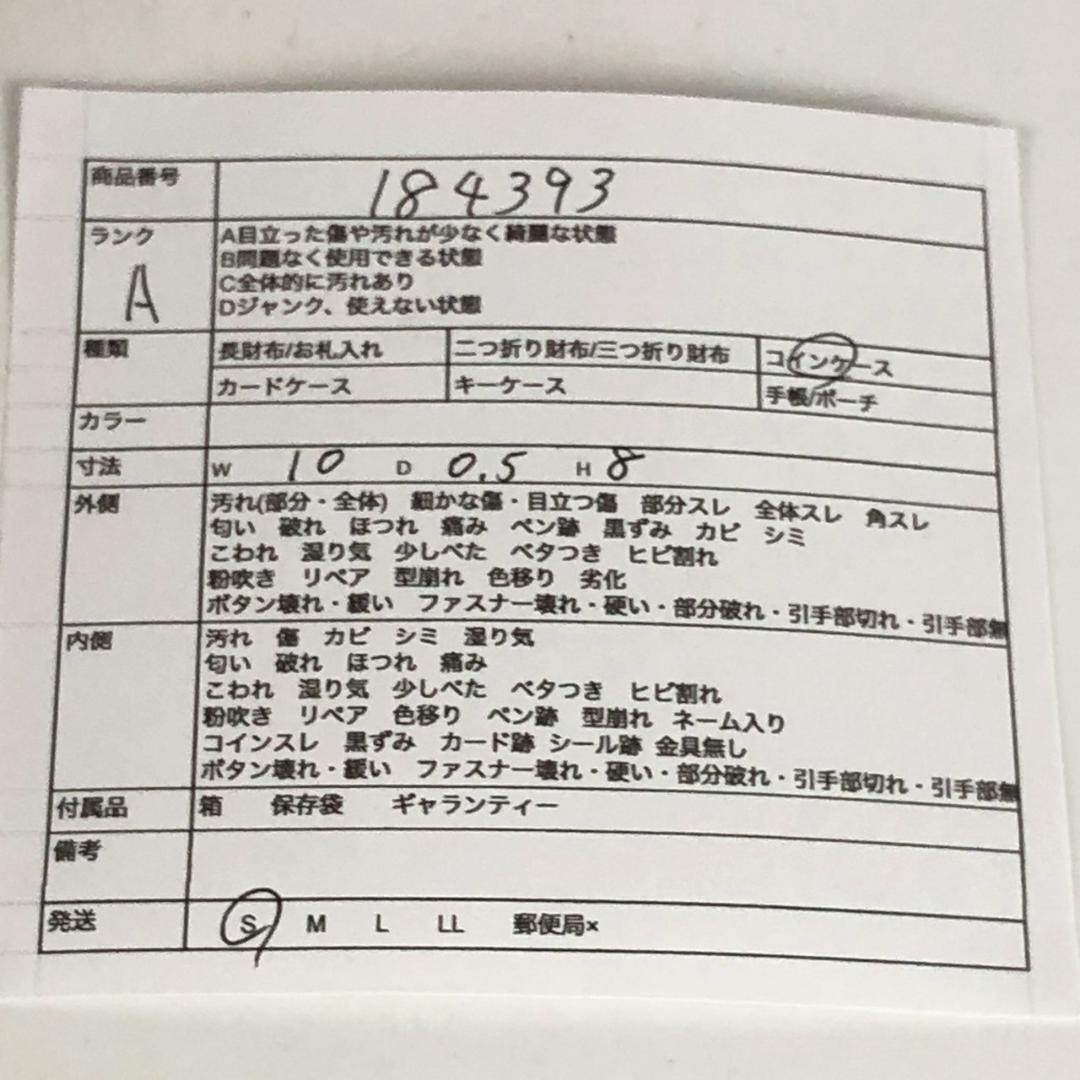 商品番号 184393
ランク A目立った傷や汚れが少なく綺麗な状態
B問題なく使用できる状態
A C全体的に汚れあり
Dジャンク、使えない状態
種類 長財布/お札入れ 二つ折り財布/三つ折り財布 コインケース
カードケース キーケース 手帳/ポーチ
カラー
寸法 W 10 D 0.5 H 8
外側 汚れ(部分・全体) 細かな傷・目立つ傷 部分スレ 全体スレ 角スレ
匂い 破れ ほつれ 痛み ペン跡 黒ずみ カビ シミ
こわれ 湿り気 少しべた ベタつき ヒビ割れ
粉吹き リペア 型崩れ 色移り 劣化
ボタン壊れ・緩い ファスナー壊れ・硬い・部分破れ・引手部切れ・引手部無
内側 汚れ 傷 カビ シミ 湿り気
匂い 破れ ほつれ 痛み
こわれ 湿り気 少しべた ベタつき ヒビ割れ
粉吹き リペア 色移り ペン跡 型崩れ ネーム入り
コインスレ 黒ずみ カード跡 シール跡 金具無し
ボタン壊れ・緩い ファスナー壊れ・硬い・部分破れ・引手部切れ・引手部無
付属品 箱 保存袋 ギャランティー
備考
発送 S M L LL 郵便局×